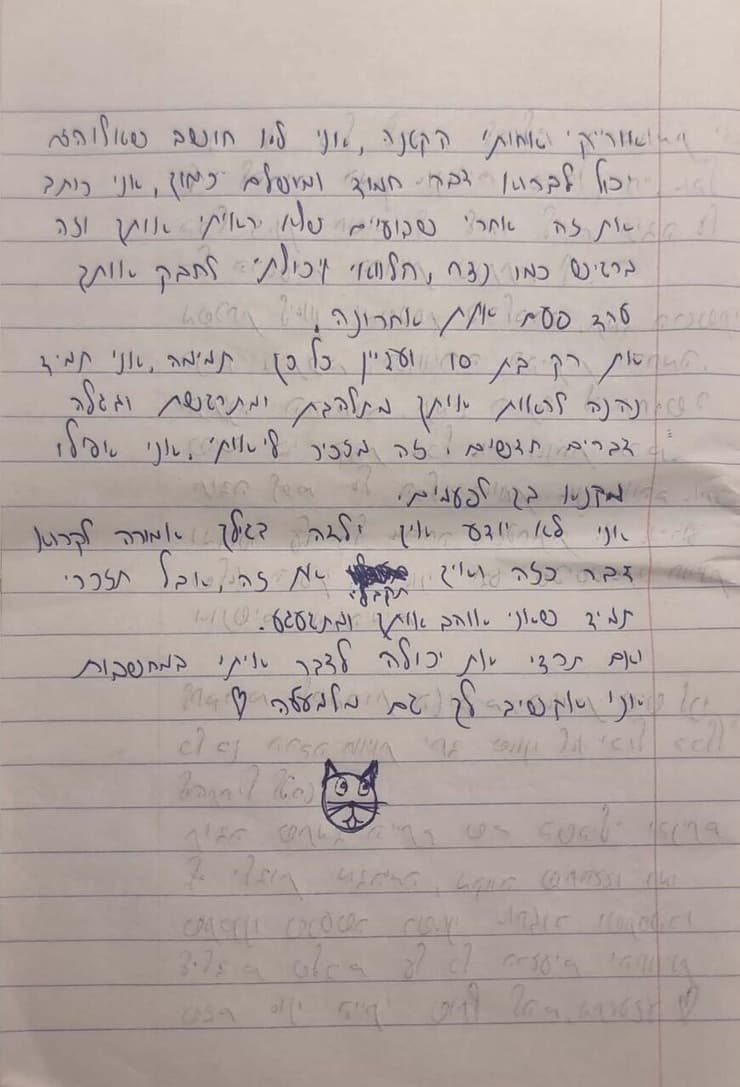 אחותי הקטנה, אני לא חושב שאלוהים
יכול לברוא דבר חמוד ומושלם כמוך, אני כותב
את זה אחרי שבועיים שלא ראיתי אותך וזה
מרגיש כמו נצח, הלוואי ויכולתי לחבק אותך
עוד פעם אחת אחרונה.
את רק בת 10 ועדיין כל כך תמימה, אני תמיד
נהנה לראות אותך מתלהבת ומתרגשת ומגלה
דברים חדשים. זה מזכיר לי אותי, אני אפילו
מקנא בך לפעמים.
אני לא יודע איך ילדה בגילך אמורה לקרוא
דבר כזה ואיך תקבלי את זה, אבל תזכרי
תמיד שאני אוהב אותך ומתגעגע.
ואם תרצי את יכולה לדבר איתי במחשבות
ואני אקשיב לך גם מלמעלה ♡